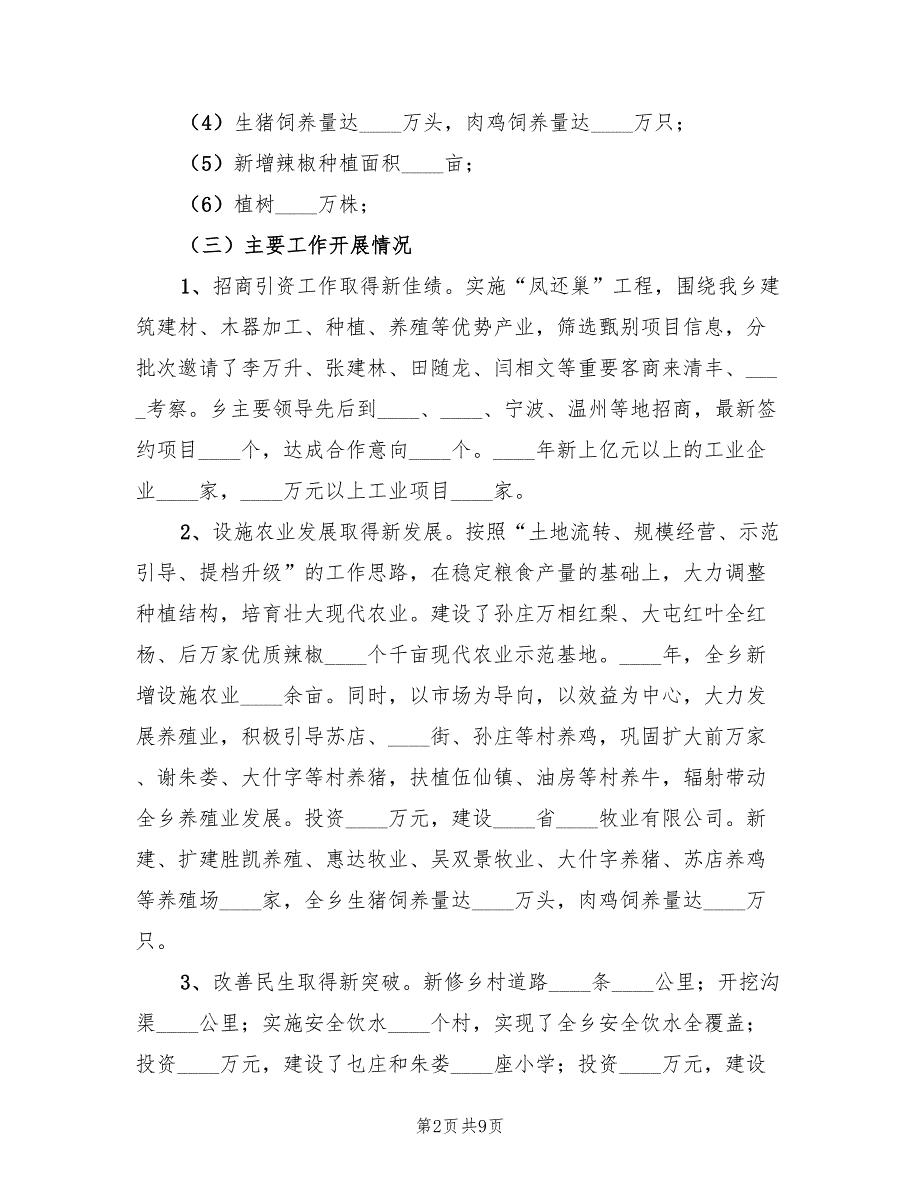 （4）生猪饲养量达____万头，肉鸡饲养量达____万只；
（5）新增辣椒种植面积____亩；
（6）植树____万株；
（三）主要工作开展情况
1、招商引资工作取得新佳绩。实施“凤还巢”工程，围绕我乡建
筑建材、木器加工、种植、养殖等优势产业，筛选甄别项目信息，分
批次邀请了李万升、张建林、田随龙、闫相文等重要客商来清丰、___
_考察。乡主要领导先后到____、____、宁波、温州等地招商，最新签
约项目____个，达成合作意向____个。____年新上亿元以上的工业企
业____家，____万元以上工业项目____家。
2、设施农业发展取得新发展。按照“土地流转、规模经营、示范
引导、提档升级”的工作思路，在稳定粮食产量的基础上，大力调整
种植结构，培育壮大现代农业。建设了孙庄万相红梨、大屯红叶全红
杨、后万家优质辣椒____个千亩现代农业示范基地。____年，全乡新
增设施农业____余亩。同时，以市场为导向，以效益为中心，大力发
展养殖业，积极引导苏店、____街、孙庄等村养鸡，巩固扩大前万家
、谢朱娄、大什字等村养猪，扶植伍仙镇、油房等村养牛，辐射带动
全乡养殖业发展。投资____万元，建设____省____牧业有限公司。新
建、扩建胜凯养殖、惠达牧业、吴双景牧业、大什字养猪、苏店养鸡
等养殖场____家，全乡生猪饲养量达____万头，肉鸡饲养量达____万
只。
3、改善民生取得新突破。新修乡村道路____条____公里；开挖沟
渠____公里；实施安全饮水____个村，实现了全乡安全饮水全覆盖；
投资____万元，建设了乜庄和朱娄____座小学；投资____万元，建设
第2页 共9页